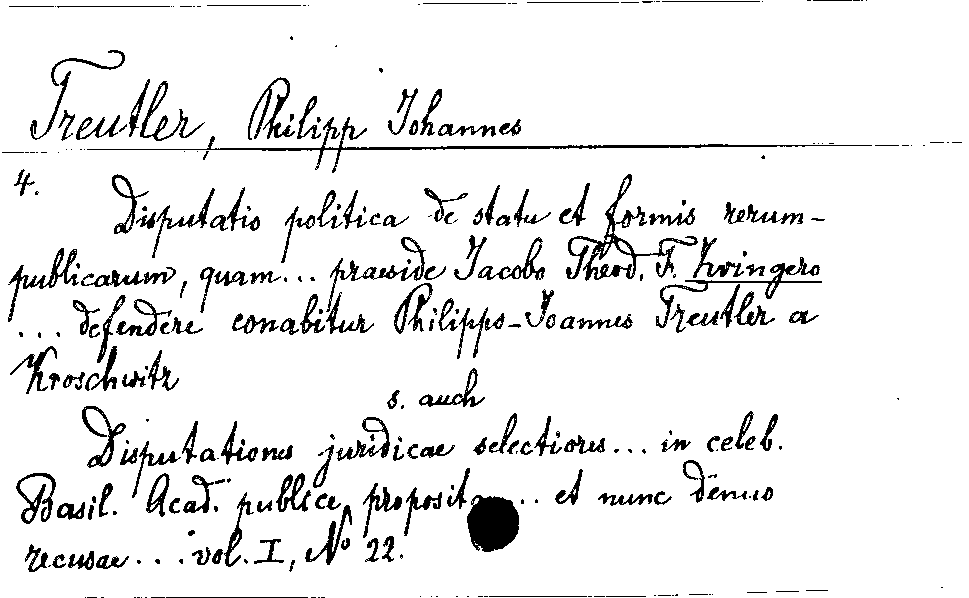 Treutler, Philipp Johannes
4.
Disputatio politica de statu et formis rerum-
publicarum, quam... praeside Jacobo Theod. F. Zwingero
... defendere conabitur Philippo-Joannes Treutler a
Kroschwitz
s. auch
Disputationes juridicae selectiores... in celeb.
Basil. Acad. publice propositae... et nunc denuo
recusae... vol. I, No 22.